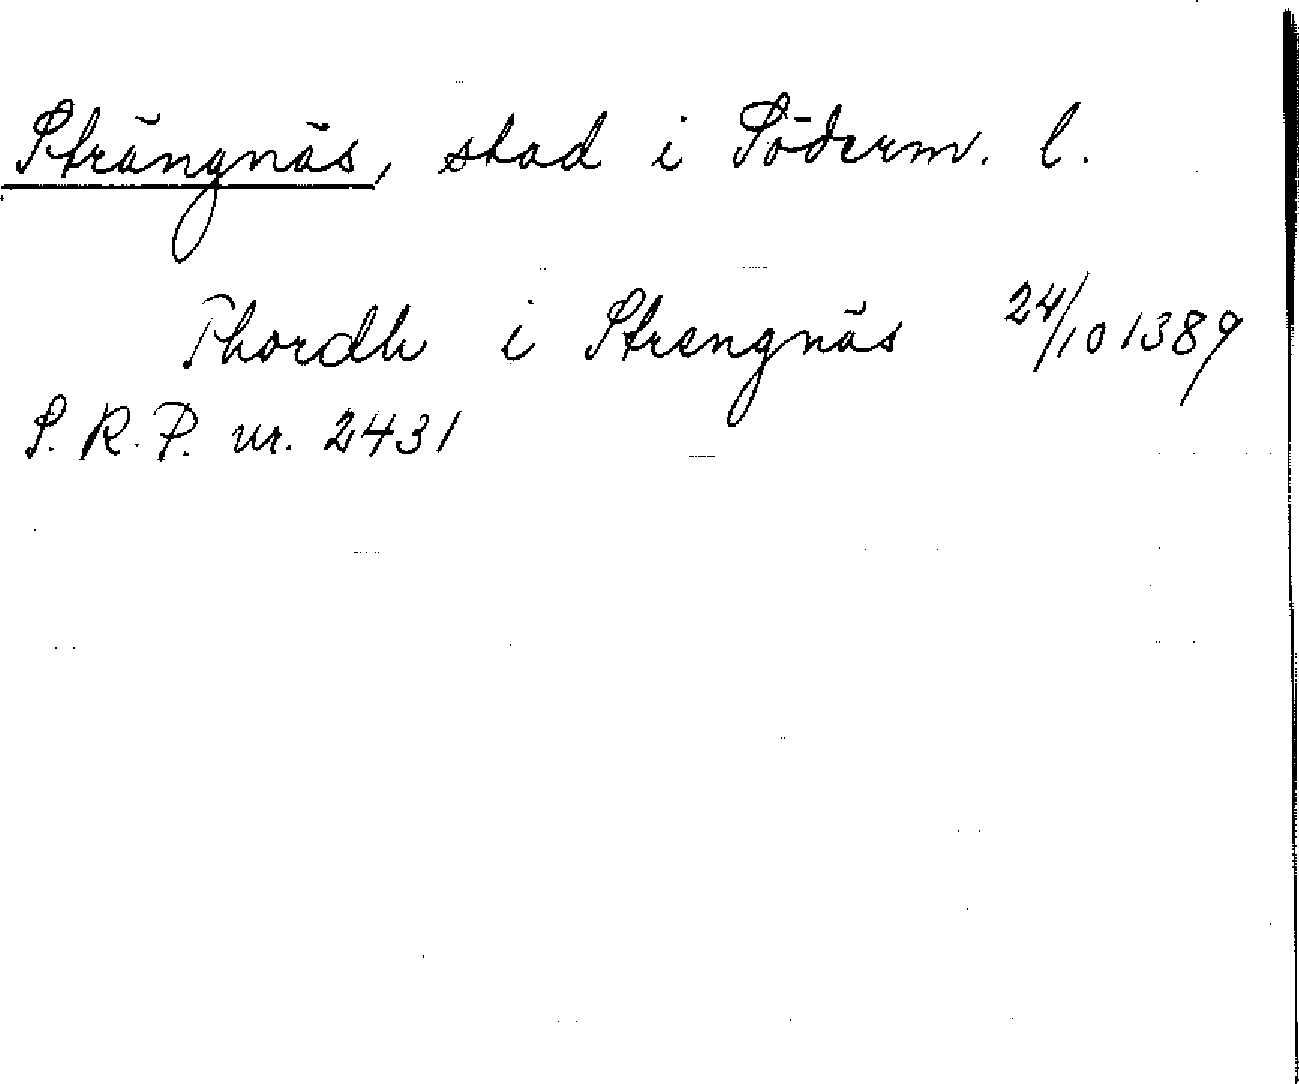 Strängnäs, stad i Söderm. l.
Thordh i Strengnäs 24/10 1389
S. R. P. nr. 2431